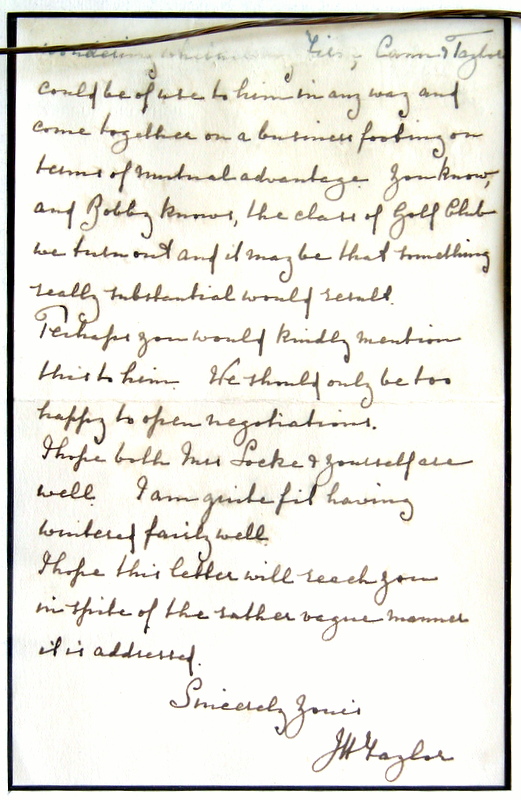 wondering whether Cann & Taylor
could be of use to him in any way and
come together on a business footing on
terms of mutual advantage. You know,
and Bobby knows, the class of Golf Club
we turn out and it may be that something
really substantial would result.
Perhaps you would kindly mention
this to him. We should only be too
happy to open negotiations.
I hope both Mrs Locke & yourself are
well. I am quite fit having
wintered fairly well.
I hope this letter will reach you
in spite of the rather vague manner
it is addressed.
Sincerely Yours
JH Taylor